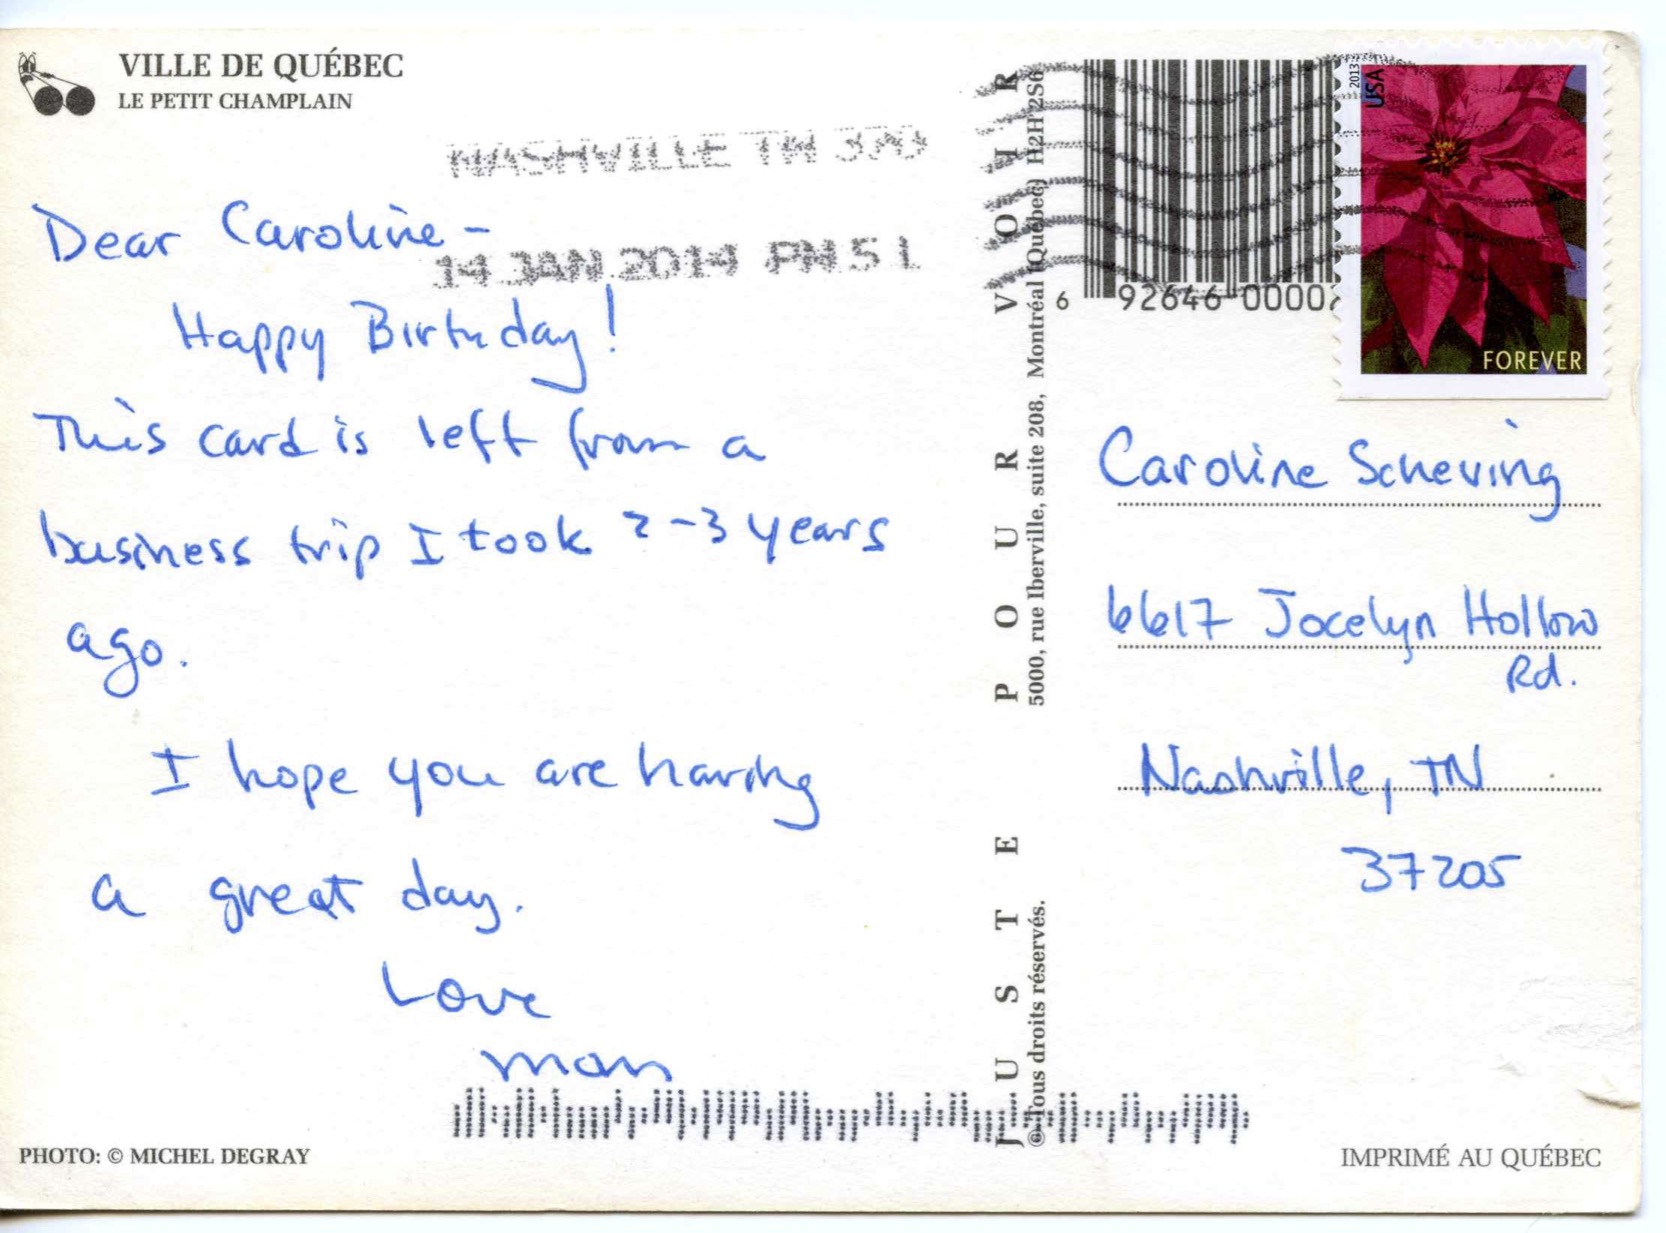 VILLE DE QUÉBEC
LE PETIT CHAMPLAIN
NASHVILLE TN 370
14 JAN 2014 PM 5 L
Dear Caroline -
Happy Birthday!
This card is left from a
business trip I took 2-3 years
ago.
I hope you are having
a great day.
Love
mom
PHOTO: © MICHEL DEGRAY
JUSTE POUR VOIR
5000, rue Iberville, suite 208, Montréal (Québec) H2H 2S6
© Tous droits réservés.
6 92646 0000
2013 USA
FOREVER
Caroline Scheving
6617 Jocelyn Hollow
Rd.
Nashville, TN
37205
IMPRIMÉ AU QUÉBEC